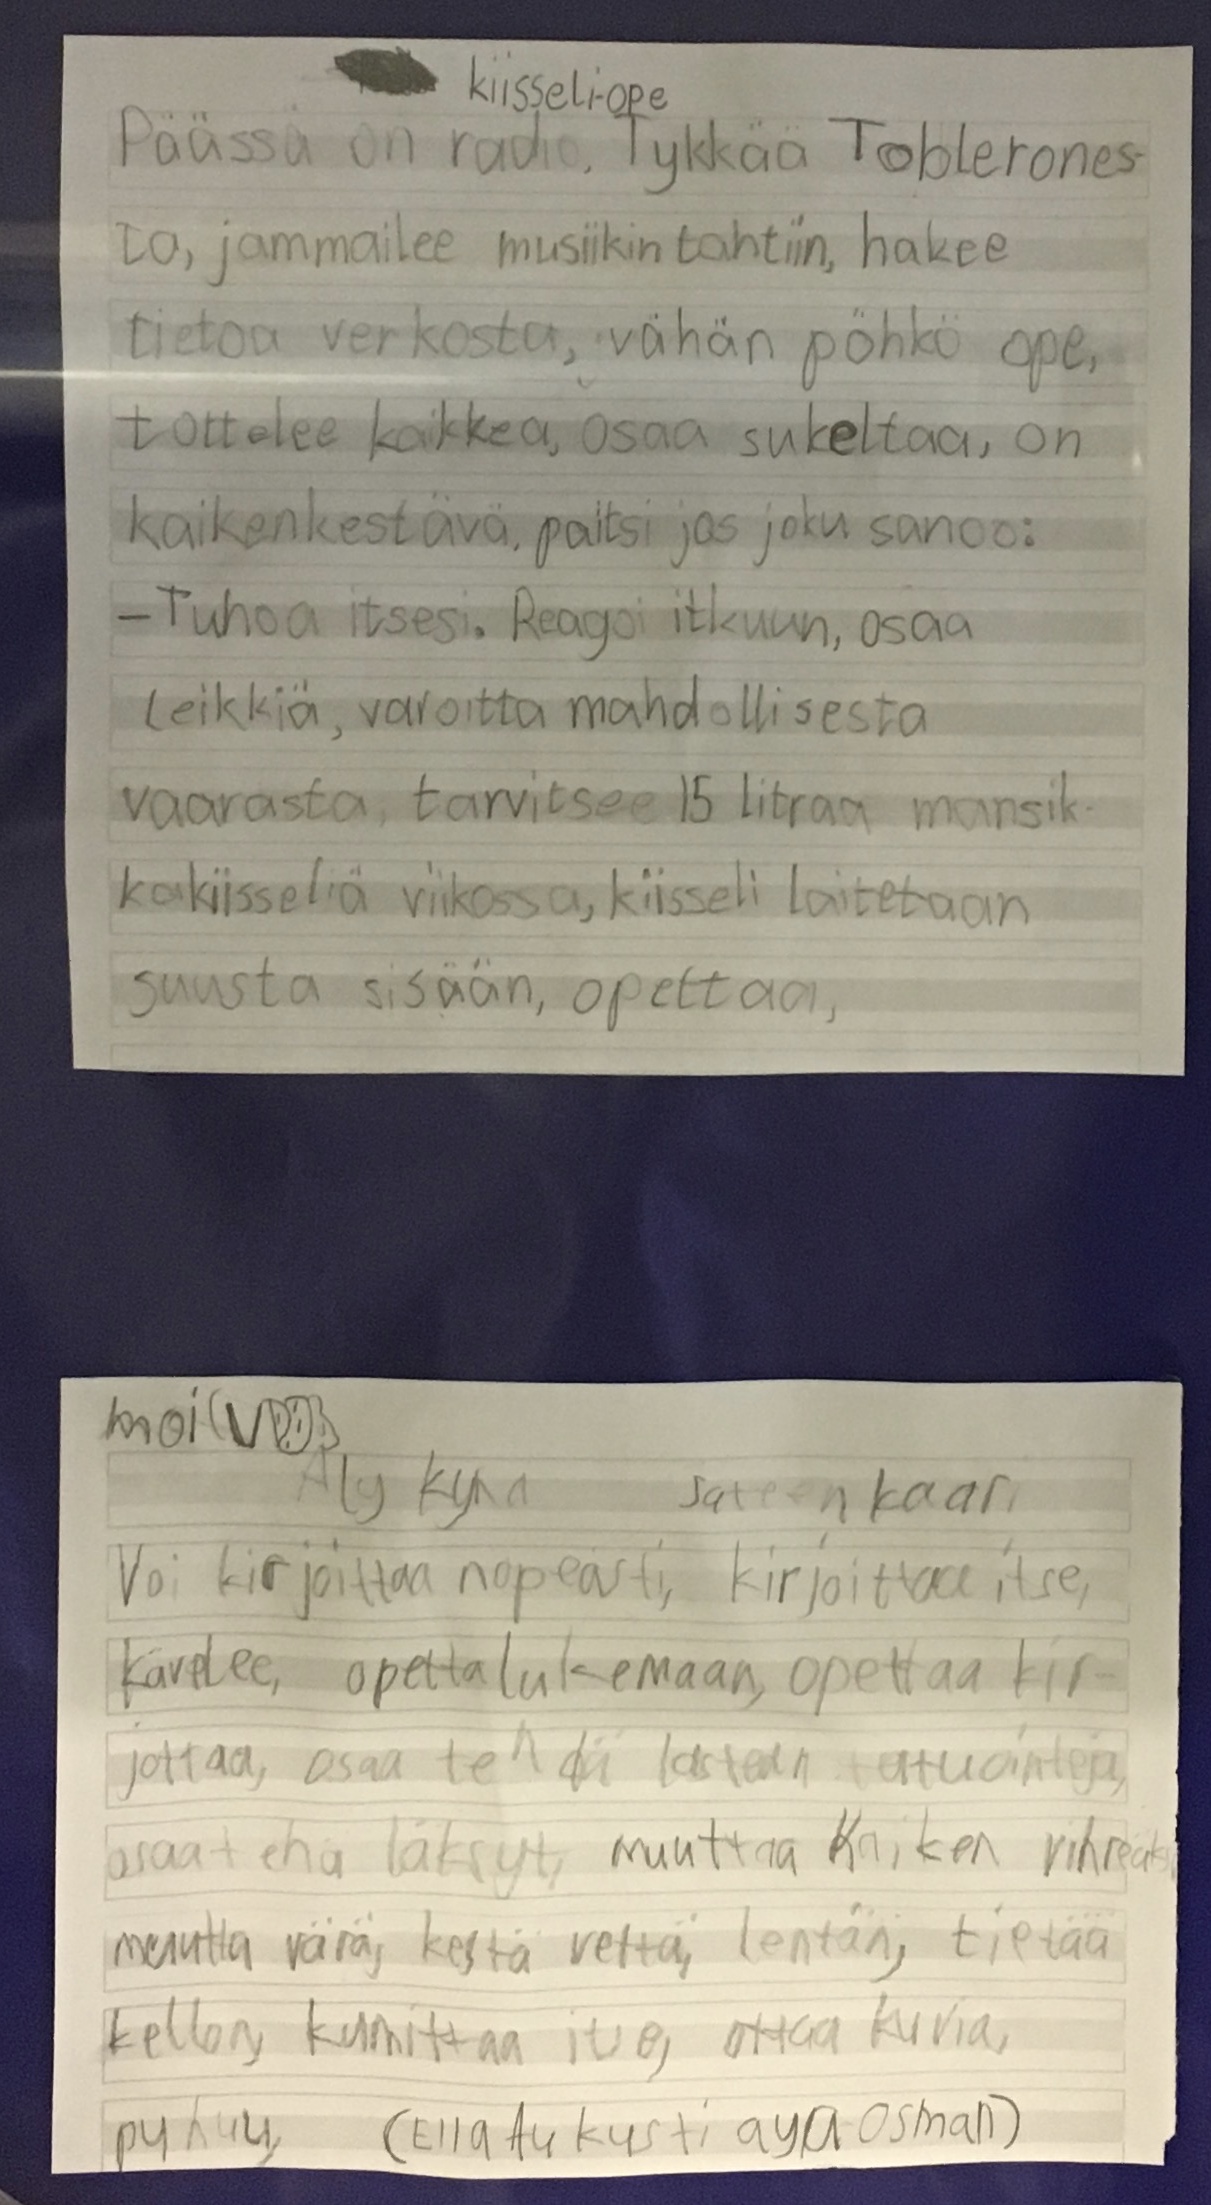 kiisseli-ope
Päässä on radio. Tykkää Toblerones-
ta, jammailee musiikin tahtiin, hakee
tietoa verkosta, vähän pöhkö ope,
tottelee kaikkea, osaa sukeltaa, on
kaikenkestävä, paitsi jos joku sanoo:
-Tuhoa itsesi. Reagoi itkuun, osaa
leikkiä, varoitta mahdollisesta
vaarasta, tarvitsee 15 litraa mansik-
kakiisseliä viikossa, kiisseli laitetaan
suusta sisään, opettaa,
moi
Äly kynä sateenkaari
Voi kirjoittaa nopeasti, kirjoittaa itse,
kävelee, opetta lukemaan, opettaa kir-
jottaa, osaa tehdä lasten tatuointeja,
osaa tehä läksyt, muuttaa kaiken vihreäksi
muutta värä, kestä vettä, lentän, tietää
kellon, kumittaa itse, ottaa kuvia,
puhuu, (Ella Au kusti aya Osman)